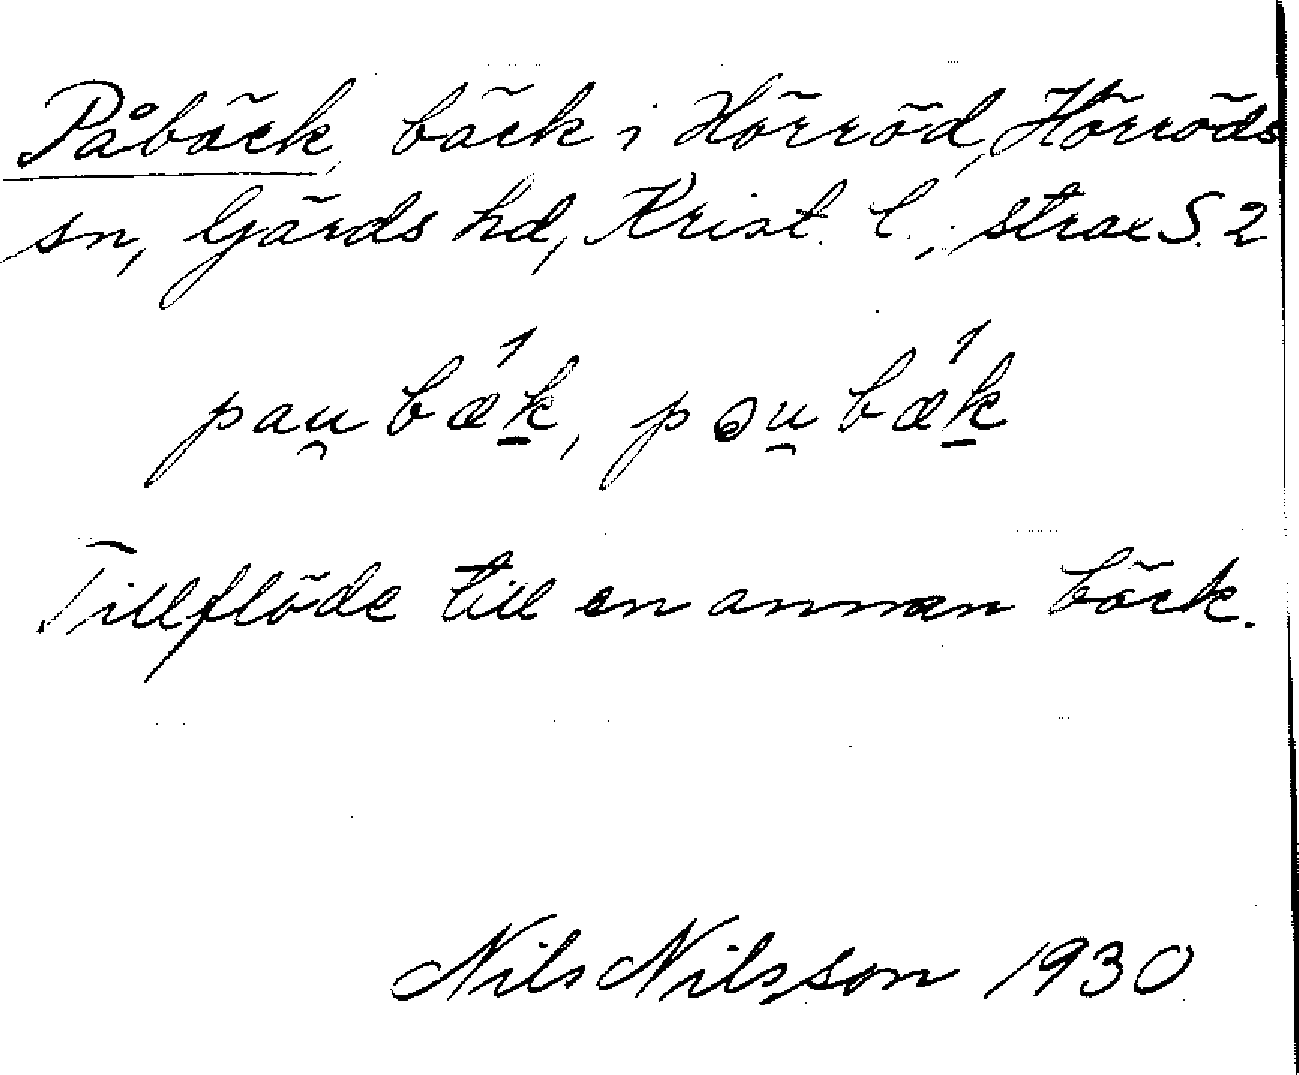 Påbäck, bäck i Hörröd, Hörröds
sn, Gärds hd, Krist. l., strax S. 2
pau̯bæ´k̠, pəu̯bæ´k̠
Tillflöde till en annan bäck.
Nils Nilsson 1930